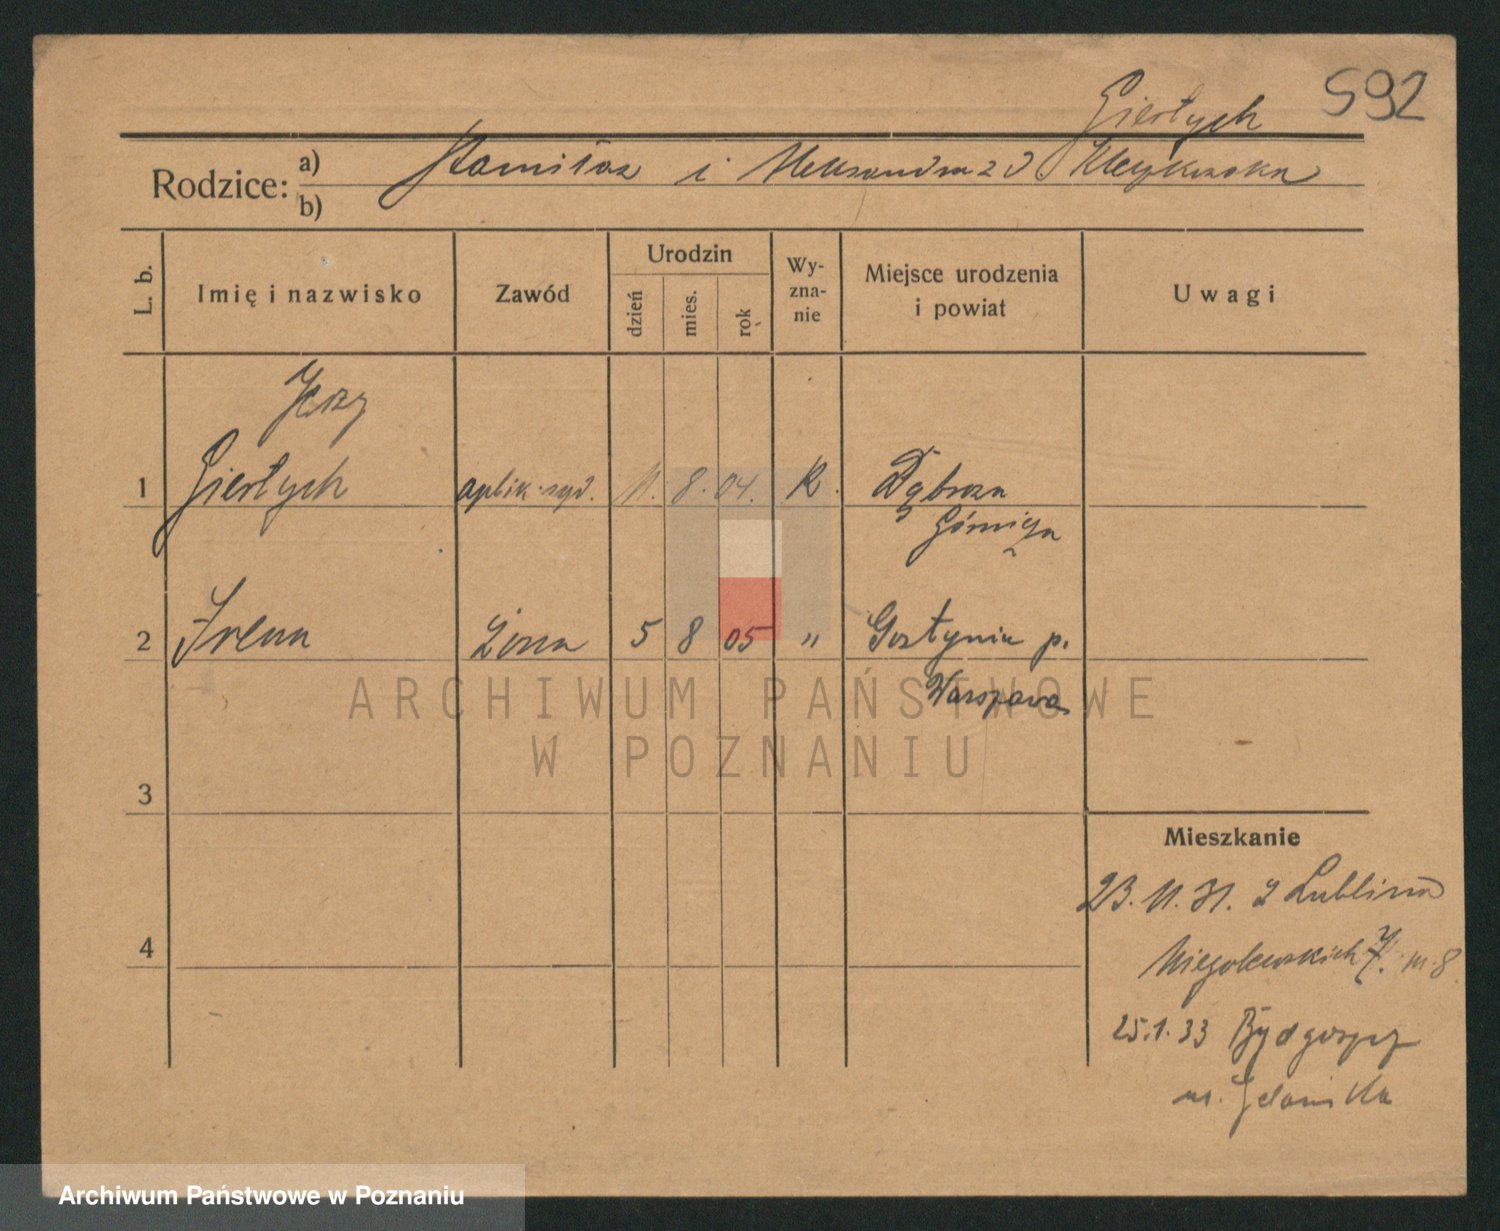 592
Giertych
Rodzice: a) Stanisław i Aleksandra z d
b)
L. b.
Imię i nazwisko
Zawód
Urodzin
dzień
mies.
rok
Wy-
zna-
nie
Miejsce urodzenia
i powiat
Uwagi
Jerzy
1 Giertych aplik. sąd. 11. 8. 04. R. Dąbrowa
Górnicza
2 Irena żona 5 8 05 " Gostynin p.
Warszawa
ARCHIWUM PAŃSTWOWE
W POZNANIU
3
Mieszkanie
23. 11. 31. z Lublina
4
Niegolewskich 7. m. 8
25. 1. 33 Bydgoszcz
Archiwum Państwowe w Poznaniu